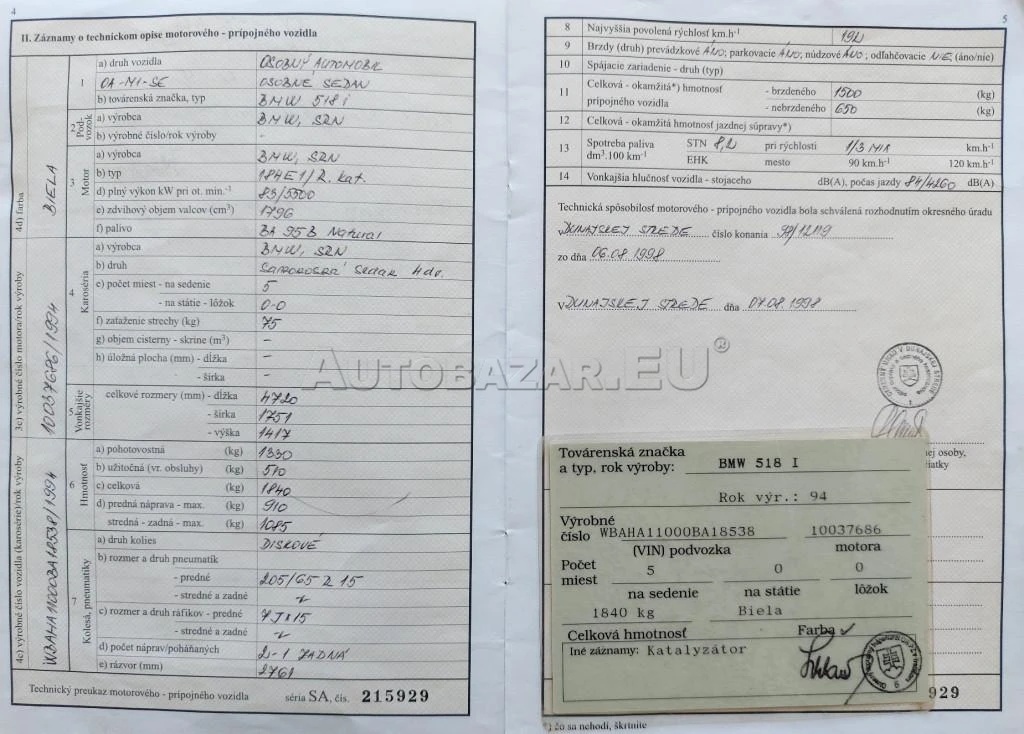 4
II. Záznamy o technickom opise motorového - prípojného vozidla
1
a) druh vozidla OSOBNÝ AUTOMOBIL
OA-M1-SE OSOBNÉ SEDAN
b) továrenská značka, typ BMW 518 i
2 Podvozok
a) výrobca BMW, SRN
b) výrobné číslo/rok výroby -
3 Motor
a) výrobca BMW, SRN
b) typ 184E1/2. kat.
d) plný výkon kW pri ot. min.⁻¹ 83/5500
e) zdvihový objem valcov (cm³) 1796
f) palivo BA 95 B Natural
4 Karoséria
a) výrobca BMW, SRN
b) druh SAMONOSNÁ SEDAN 4dv.
e) počet miest - na sedenie 5
- na státie - lôžok 0-0
f) zaťaženie strechy (kg) 75
g) objem cisterny - skrine (m³) -
h) úložná plocha (mm) - dĺžka -
- šírka -
5 Vonkajšie rozmery
celkové rozmery (mm) - dĺžka 4720
- šírka 1751
- výška 1417
6 Hmotnosť
a) pohotovostná (kg) 1330
b) užitočná (vr. obsluhy) (kg) 510
c) celková (kg) 1840
d) predná náprava - max. (kg) 910
stredná - zadná - max. (kg) 1085
7 Kolesá, pneumatiky
a) druh kolies DISKOVÉ
b) rozmer a druh pneumatík
- predné 205/65 R 15
- stredné a zadné
c) rozmer a druh ráfikov - predné 7Jx15
- stredné a zadné
d) počet náprav/poháňaných 2-1 ZADNÁ
e) rázvor (mm) 2761
4d) farba BIELA
3c) výrobné číslo motora/rok výroby 10037686/1994
4c) výrobné číslo vozidla (karosérie)/rok výroby WBAHA11000BA18538/1994
Technický preukaz motorového - prípojného vozidla séria SA, čís. 215929
5
8 Najvyššia povolená rýchlosť km.h⁻¹ 192
9 Brzdy (druh) prevádzkové ÁNO; parkovacie ÁNO; núdzové ÁNO; odľahčovacie NIE (áno/nie)
10 Spájacie zariadenie - druh (typ)
11 Celková - okamžitá*) hmotnosť - brzdeného 1500 (kg)
prípojného vozidla - nebrzdeného 650 (kg)
12 Celková - okamžitá hmotnosť jazdnej súpravy*)
13 Spotreba paliva STN 8,2 pri rýchlosti 1/3 MIX km.h⁻¹
dm³.100 km⁻¹ EHK mesto 90 km.h⁻¹ 120 km.h⁻¹
14 Vonkajšia hlučnosť vozidla - stojaceho dB(A), počas jazdy 84/4260 dB(A)
Technická spôsobilosť motorového - prípojného vozidla bola schválená rozhodnutím okresného úradu
v DUNAJSKEJ STREDE číslo konania 98/12119
zo dňa 06.08.1998
V DUNAJSKEJ STREDE dňa 07.08.1998
AUTOBAZAR.EU®
nej osoby,
čiatky
Továrenská značka
a typ, rok výroby: BMW 518 I
Rok výr.: 94
Výrobné
číslo WBAHA11000BA18538 10037686
(VIN) podvozka motora
Počet
miest 5 0 0
na sedenie na státie lôžok
1840 kg Biela
Celková hmotnosť Farba
Iné záznamy: Katalyzátor
929
*) čo sa nehodí, škrtnite